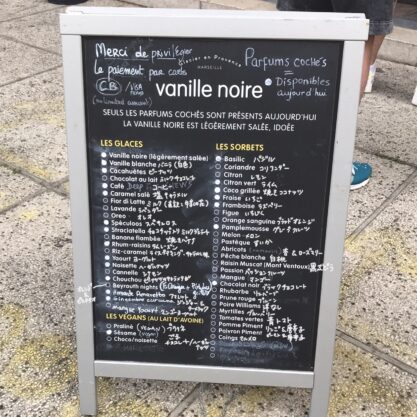 Merci de privilégier
le paiement par carte
CB
VISA
Glacier en Provence
MARSEILLE
Parfums cochés
= Disponibles
aujourd'hui
vanille noire
SEULS LES PARFUMS COCHÉS SONT PRÉSENTS AUJOURD'HUI
LA VANILLE NOIRE EST LÉGÈREMENT SALÉE, IODÉE
LES GLACES
Vanille noire (légèrement salée)
Vanille blanche バニラ (白色)
Cacahuètes ピーナッツ
Chocolat au lait ミルクチョコレート
Café コーヒー
Caramel salé 塩キャラメル
Fior di Latte ミルク
Lavande ラベンダー
Oreo オレオ
Spéculoos スペキュロス
Stracciatella
Banane flambée 焼きバナナ
Rhum-raisins ラムレーズン
Riz-caramel
Yaourt ヨーグルト
Noisette ヘーゼルナッツ
Cannelle シナモン
Chouchou
Beyrouth nights
Amande Amaretto
Gingembre caramel
Mangue Yaourt マンゴーヨーグルト
LES VEGANS (AU LAIT D'AVOINE)
Praliné (VEGAN) プラリネ
Sésame (vegan) ゴマ
Choco/noisette
LES SORBETS
Basilic バジル
Coriandre コリアンダー
Citron レモン
Citron vert ライム
Coco grillée 焼きココナッツ
Fraise いちご
Framboise ラズベリー
Figue いちじく
Orange sanguine ブラッドオレンジ
Pamplemousse グレープフルーツ
Melon メロン
Pastèque すいか
Abricots
Pêche blanche 白桃
Raisin Muscat (Mont Ventoux) 黒ブドウ
Passion パッションフルーツ
Mangue マンゴー
Chocolat noir ブラックチョコレート
Rhubarbe ルバーブ
Prune rouge プルーン
Poire Williams
Myrtilles ブルーベリー
Tomates vertes 青トマト
Pomme Piment
Poivron Piment
Coings マルメロ